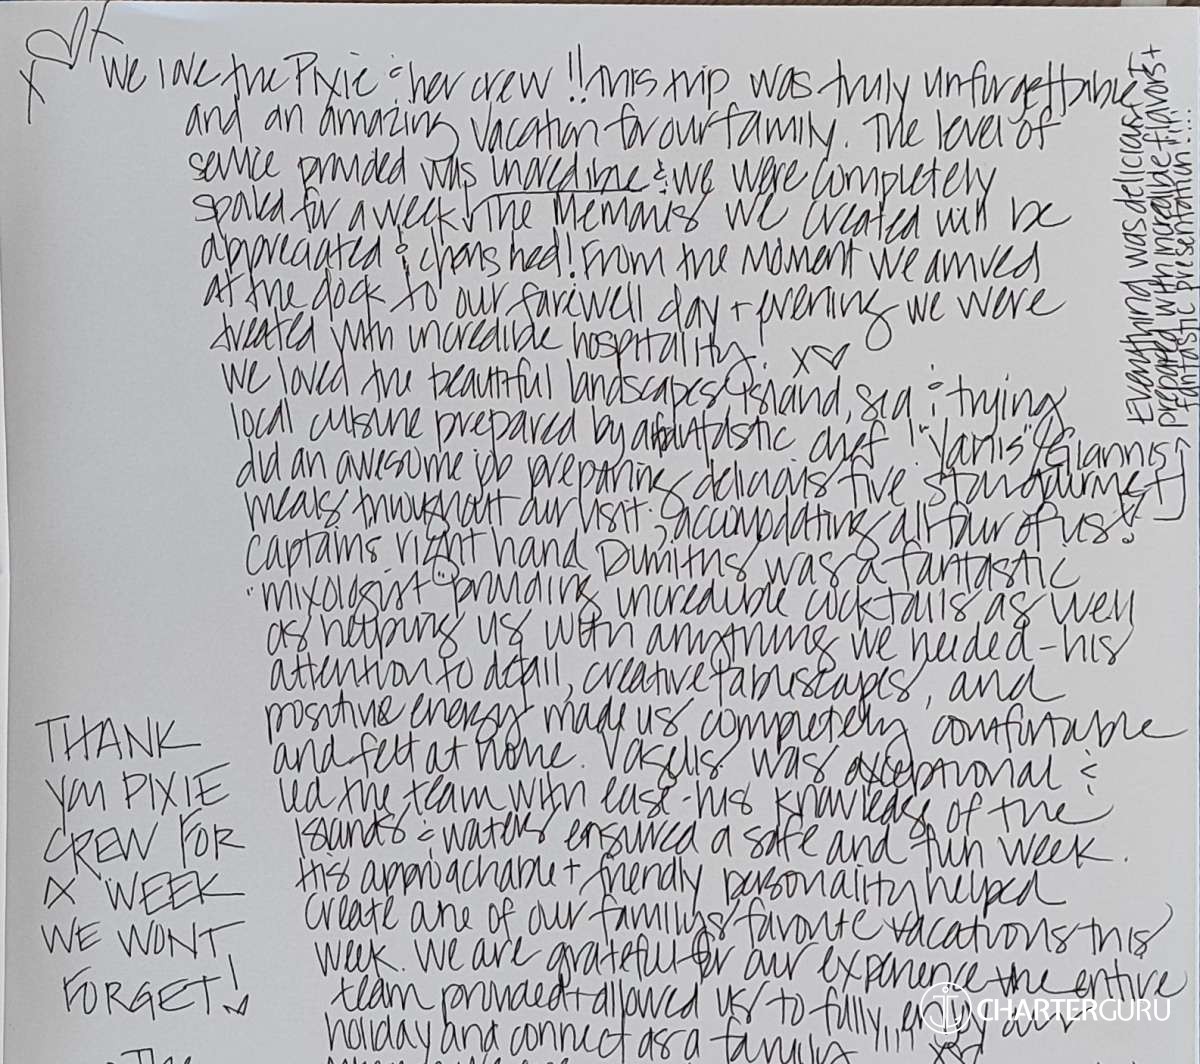 We love the Pixie & her crew!! This trip was truly unforgettable
and an amazing vacation for our family. The level of
service provided was incredible & we were completely
spoiled for a week! The memories we created will be
appreciated & cherished! From the moment we arrived
at the dock to our farewell day + evening we were
treated with incredible hospitality! X♡
We loved the beautiful landscapes, island, sea & trying
local cuisine prepared by a fantastic chef! "Yanis"/Giannis
did an awesome job preparing delicious five star gourmet
meals throughout our visit; accomodating all four of us!
Captains right hand Dimitris was a fantastic
"mixologist" providing incredible cocktails as well
as helping us with anything we needed - his
attention to detail, creative tablescapes, and
positive energy made us completely comfortable
and felt at home. Vasilis was exceptional &
led the team with ease - his knowledge of the
Islands & waters ensured a safe and fun week.
His approachable + friendly personality helped
create one of our family's favorite vacations this
week. We are grateful for our experience the entire
team provided + allowed us to fully enjoy our
holiday and connect as a family
Everything was delicious +
prepared with incredible flavors +
fantastic presentation!...
THANK
YOU PIXIE
CREW FOR
A WEEK
WE WONT
FORGET!
The
CHARTERGURU